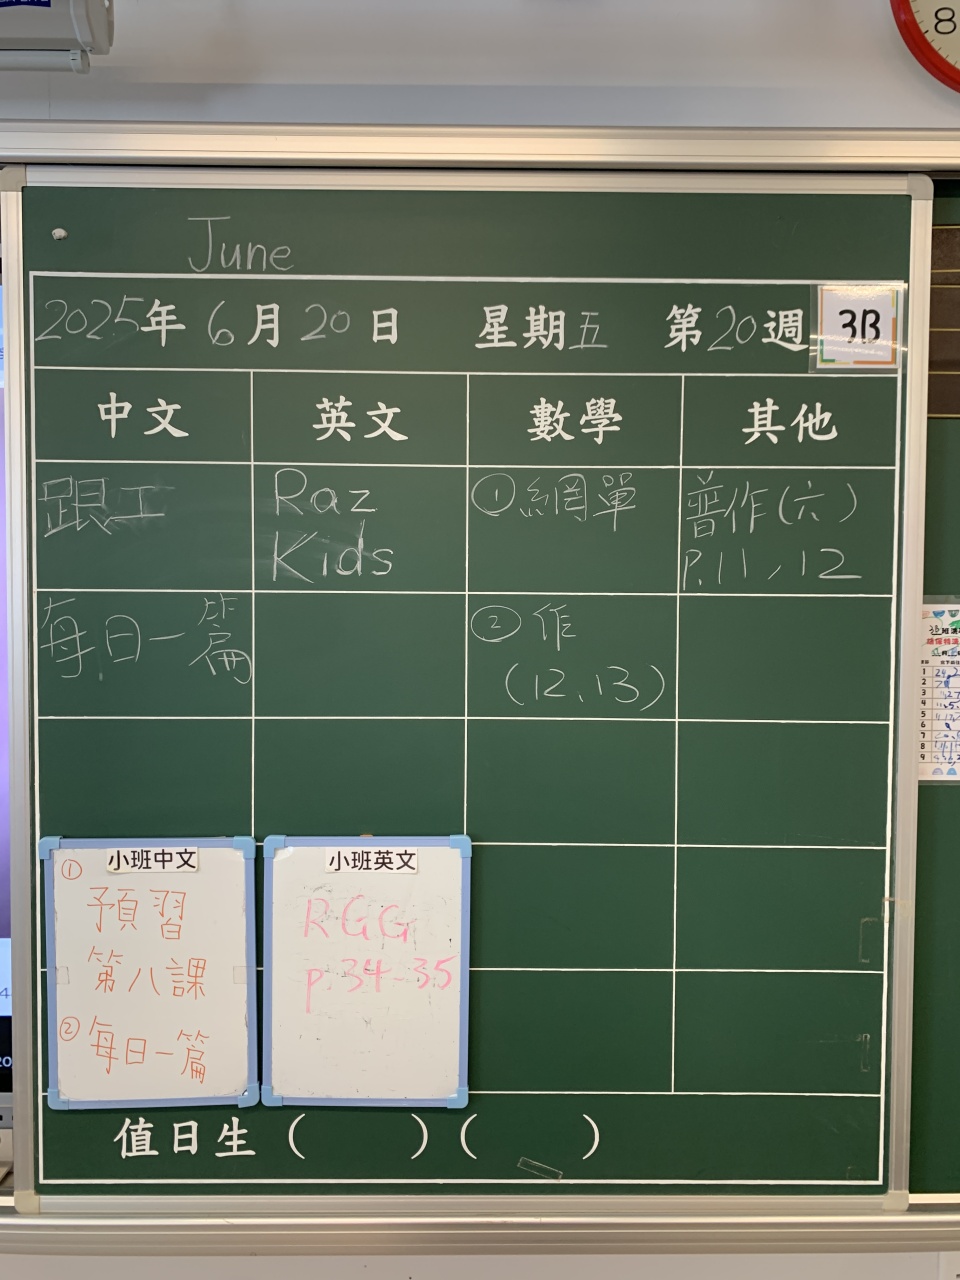 8
June
2025年 6月 20日 星期五 第20週 3B
中文 英文 數學 其他
跟工
每日一篇
Raz
Kids
①網單
②作
(12、13)
普作(六)
P.11,12
小班中文
①
預習
第八課
②每日一篇
小班英文
RGG
p.34-35
值日生 ( ) ( )